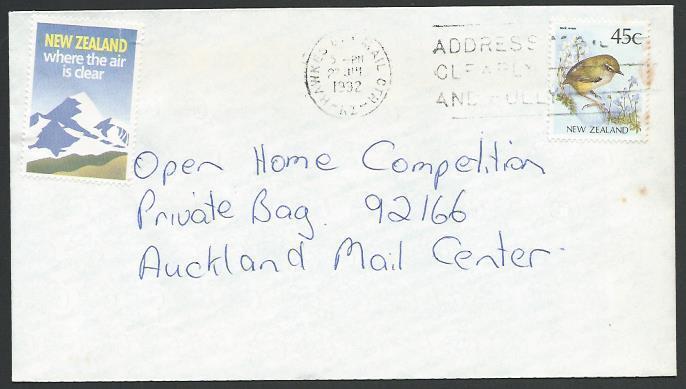 NEW ZEALAND
where the air
is clear
HAWKES BAY MAIL CTR
5 - PM
1992
NZ
ADDRESS MAIL
CLEARLY
AND FULLY
45c
NEW ZEALAND
Open Home Competition
Private Bag. 92166
Auckland Mail Center